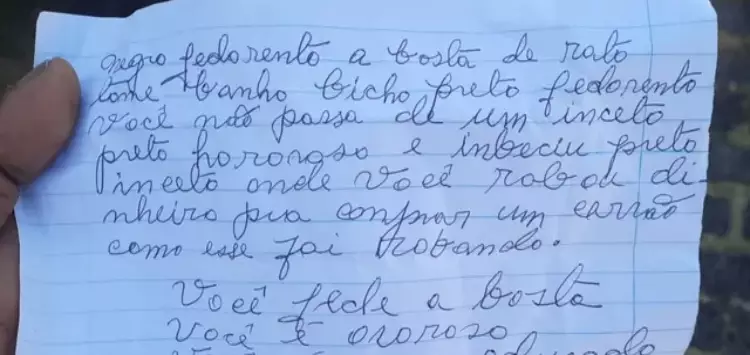 negro fedorento a bosta de rato
tome banho bicho preto fedorento
você não passa de um inceto
preto hororoso e inbeciu preto
inceto onde você robou di-
nheiro pra conprar um carrão
como esse foi robando.
Você fede a bosta
Você é ororoso